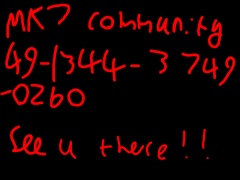 MK7 community
49-1344-3749
-0260
See u there!!